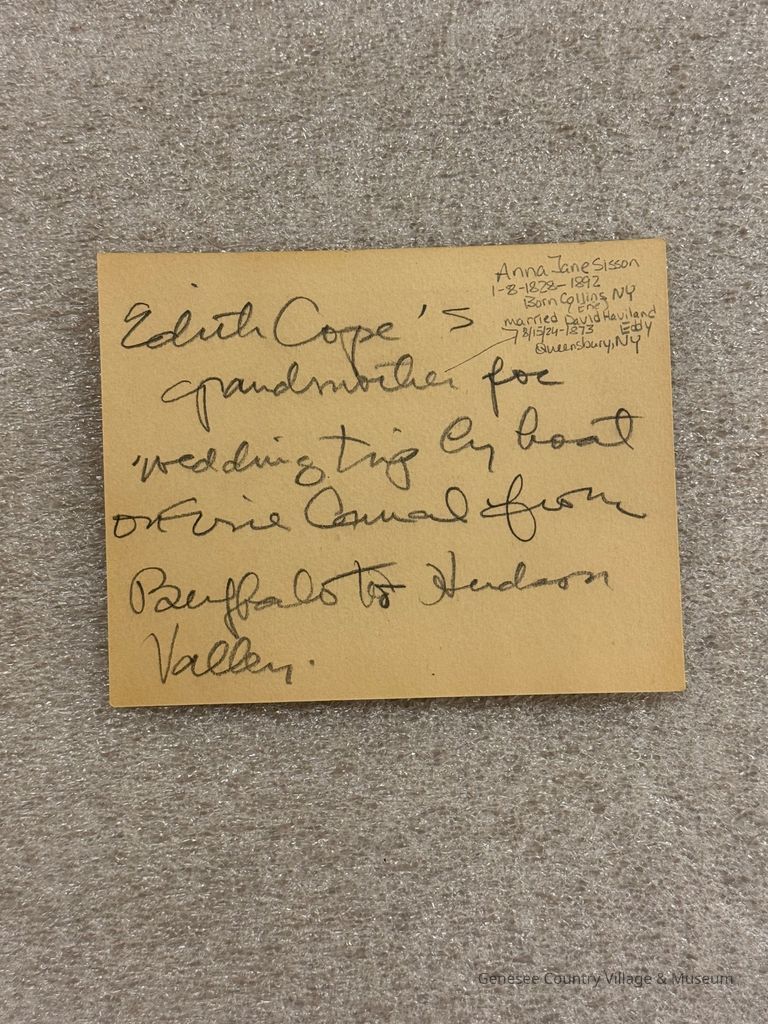 Anna Jane Sisson
1-8-1828-1892
Born Collins, NY
Erie
married David Haviland
8/15/24-1873 Eddy
Queensbury, NY
Edith Cope's
grandmother for
wedding trip by boat
on Erie Canal from
Buffalo to Hudson
Valley.
Genesee Country Village & Museum